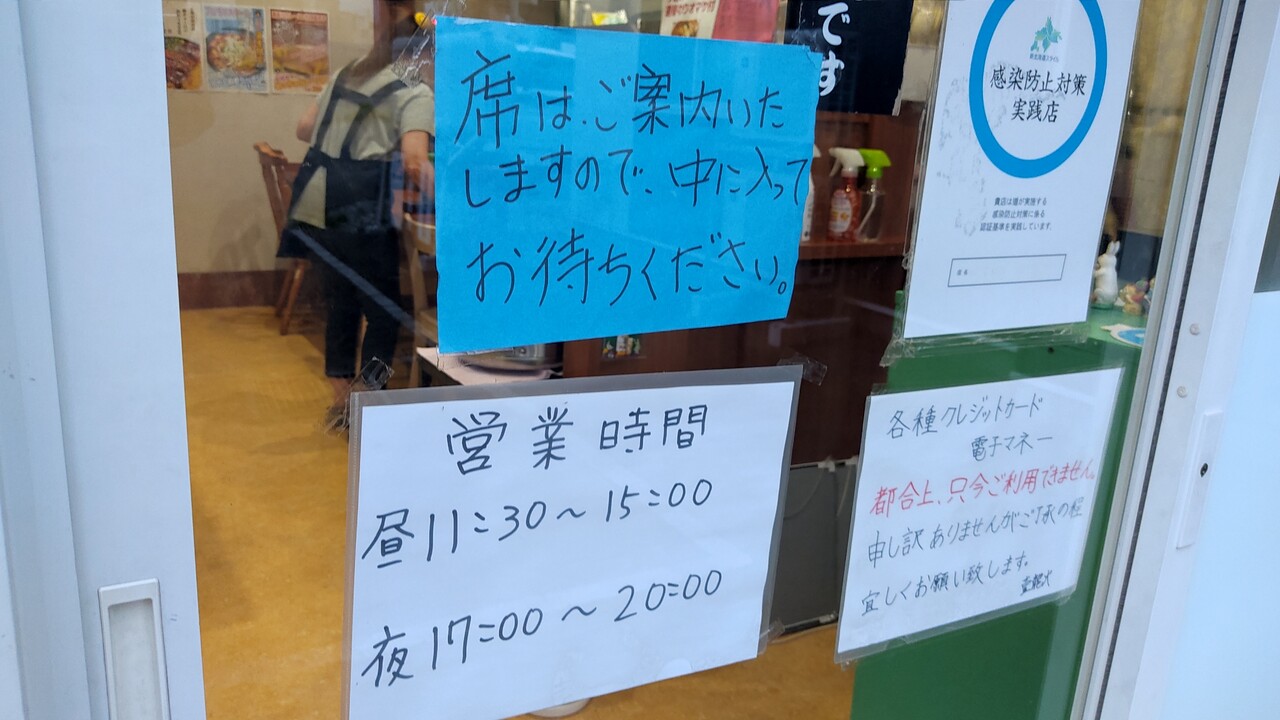 席は、ご案内いた
しますので、中に入って
お待ちください。
営業時間
昼11:30〜15:00
夜17:00〜20:00
です
感染防止対策
実践店
貴店は道が実施する
感染防止対策に係る
認証基準を実践しています。
各種クレジットカード
電子マネー
都合上、只今ご利用できません。
申し訳ありませんがご了承の程
宜しくお願い致します。